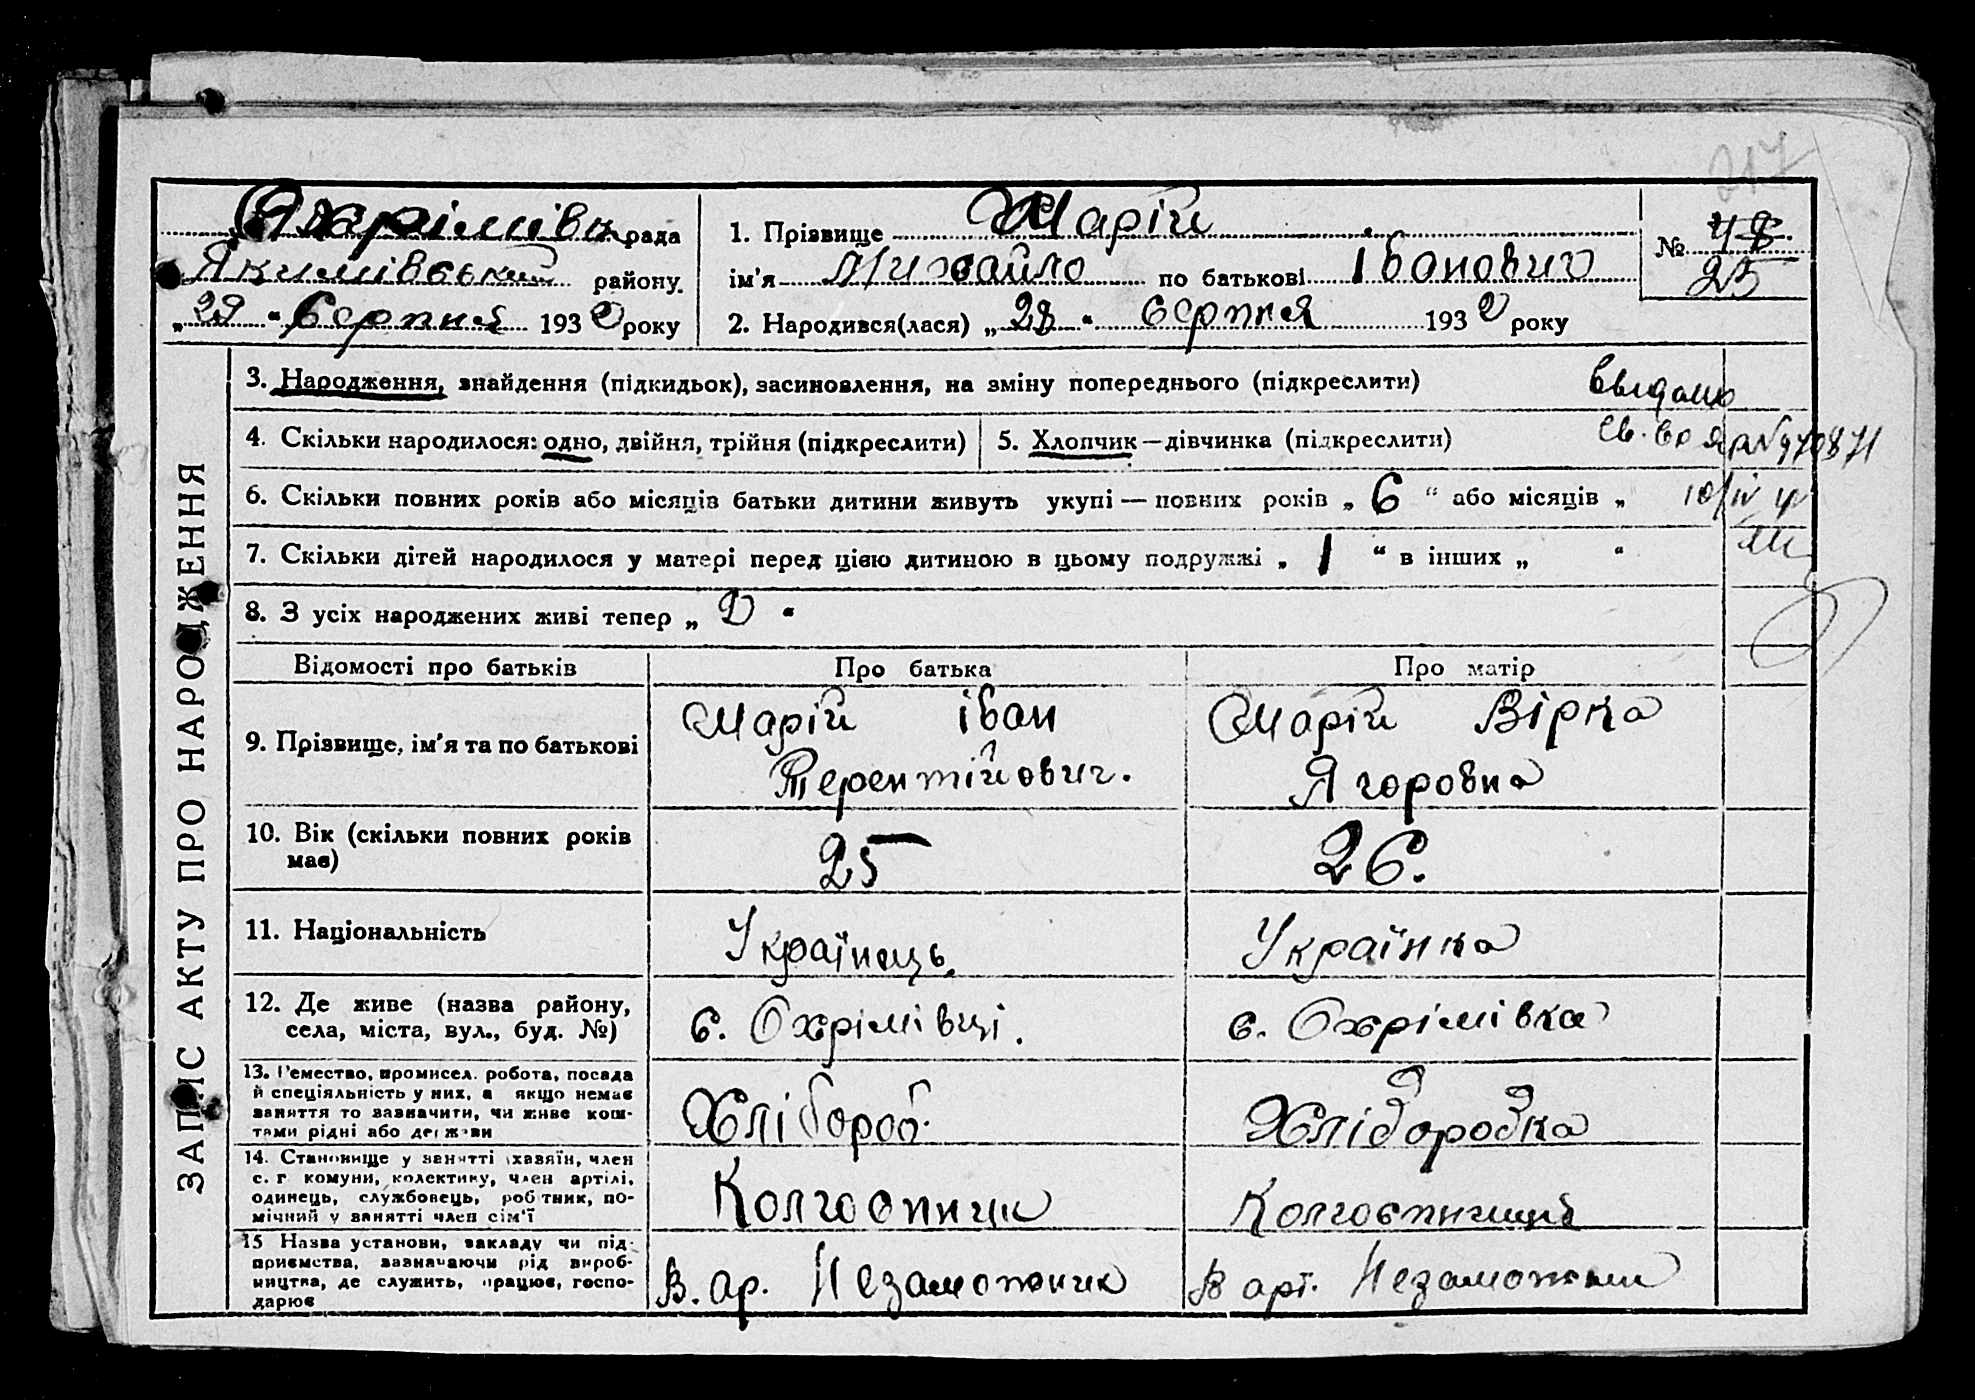 217
Охрімівк рада
Якимівський району.
„ 29 “ Серпня 1932 року
1. Прізвище Шарій
ім'я Михайло по батькові Іванович
2. Народився(лася) „ 28 “ Серпня 1932 року
№ 48
25
ЗАПИС АКТУ ПРО НАРОДЖЕННЯ
3. Народження, знайдення (підкидьок), засиновлення, на зміну попереднього (підкреслити)
4. Скільки народилося: одно, двійня, трійня (підкреслити)
5. Хлопчик—дівчинка (підкреслити)
6. Скільки повних років або місяців батьки дитини живуть укупі — повних років „ 6 “ або місяців „
7. Скільки дітей народилося у матері перед цією дитиною в цьому подружжі „ 1 “ в інших „ “
8. З усіх народжених живі тепер „ 2 “
Відомості про батьків
Про батька
Про матір
9. Прізвище, ім'я та по батькові
Шарій іван
Терентійович.
Шарій Вірка
Ягоровна
10. Вік (скільки повних років
має)
25
26.
11. Національність
Українець.
Українка
12. Де живе (назва району,
села, міста, вул., буд. №)
с. Охрімівці.
с. Охрімівка
13. Ремество, промисел. робота, посада
й спеціяльність у них, а якщо немає
заняття то зазначити, чи живе кош-
тами рідні або держави
Хлібороб.
Хліборобка
14. Становище у занятті (хазяїн, член
с. г комуни, колективу, член артілі,
одинець, службовець, робітник, по-
мічний у занятті член сім'ї
Колгоспник
Колгоспниця
15 Назва установи, закладу чи під-
приємства, зазначаючи рід вироб-
ництва, де служить, працює, госпо-
дарює
В. ар. Незаможник
В арт. Незаможник